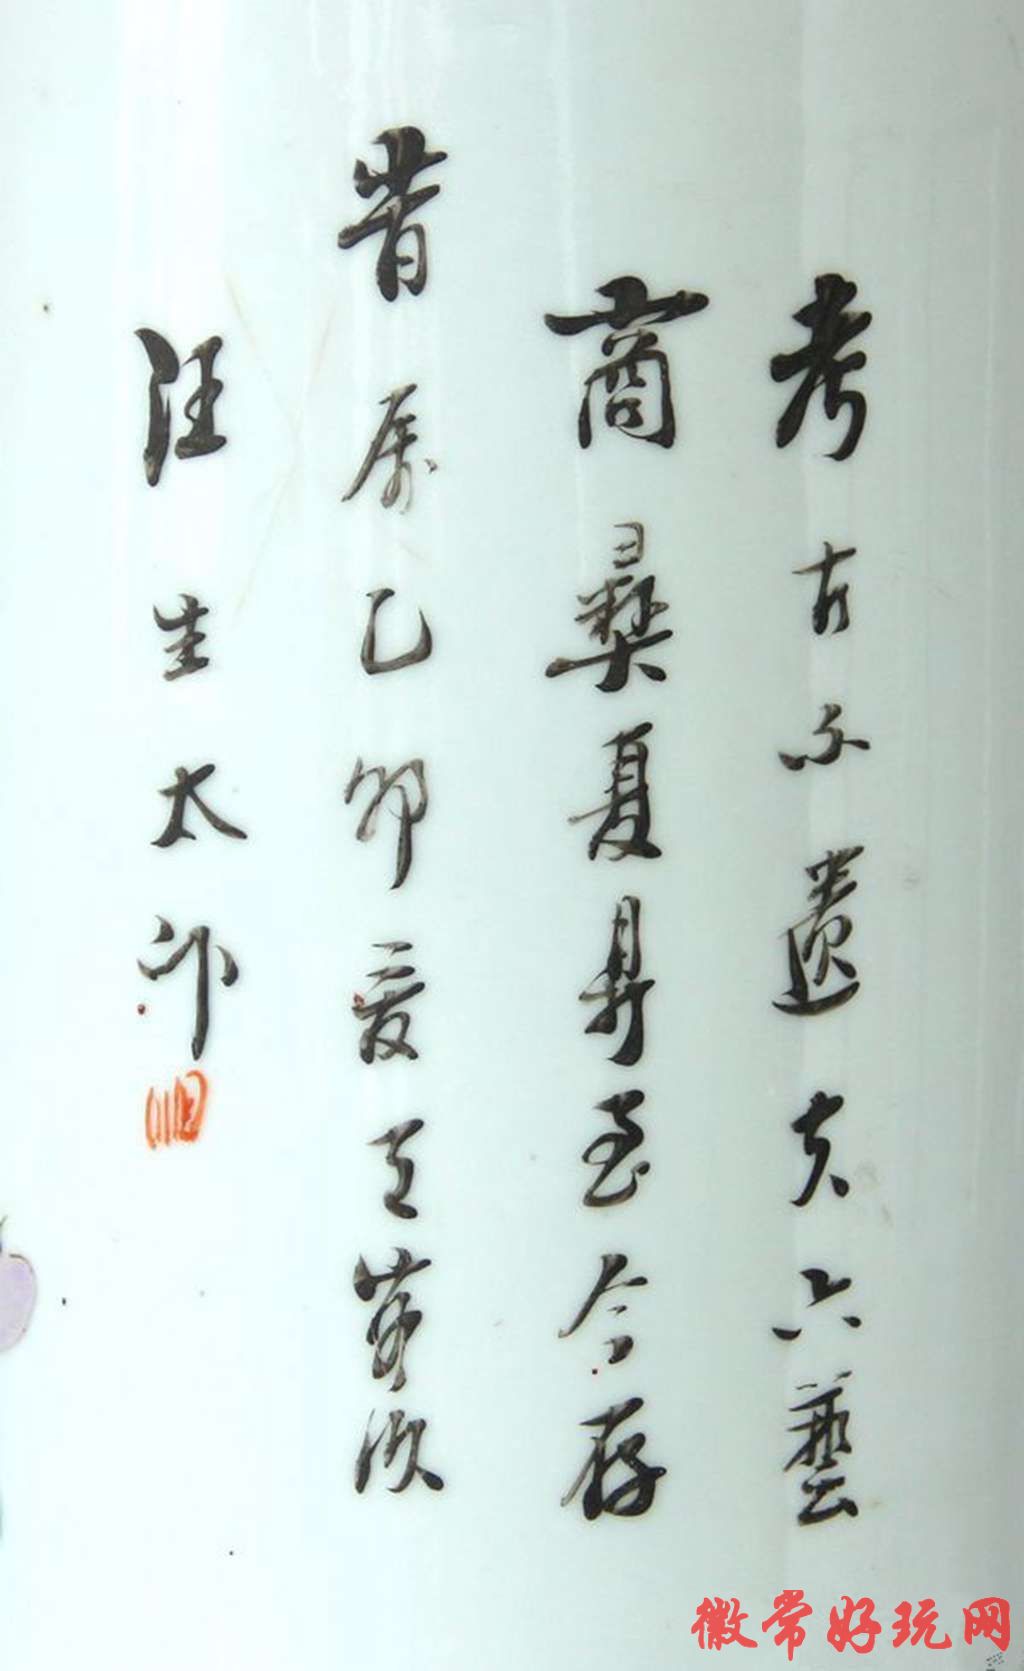 考古不遗夫六藝
商彝夏鼎至今存
时属乙卯夏王月次
汪生太作
徽常好玩网